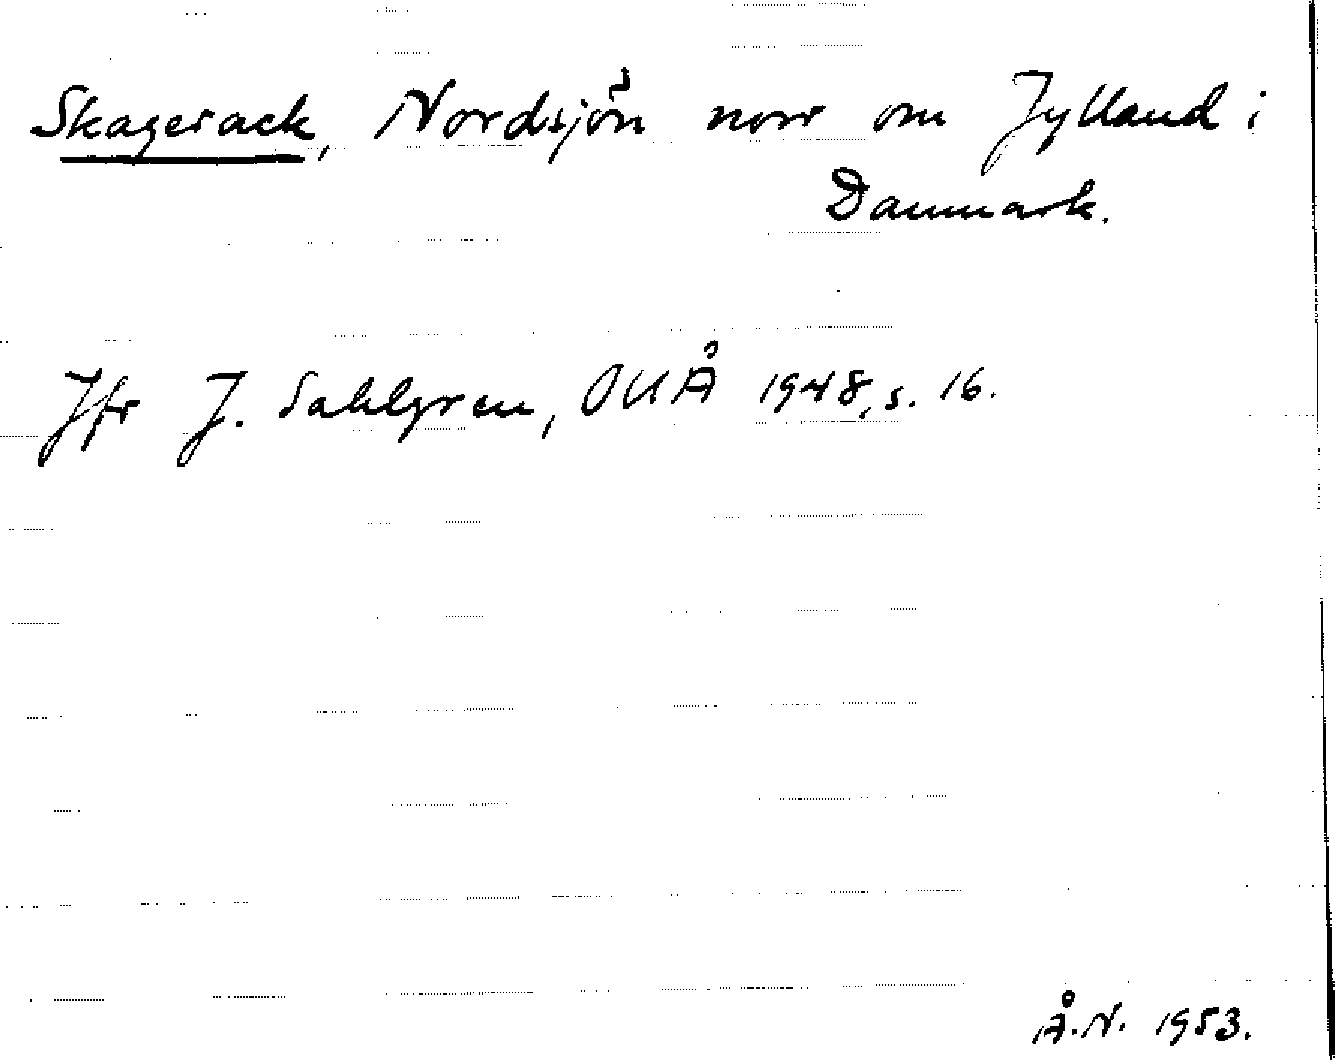 Skagerack, Nordsjön norr om Jylland i
Danmark.
Jfr J. Sahlgren, OUÅ 1948, s. 16.
Å.N. 1953.